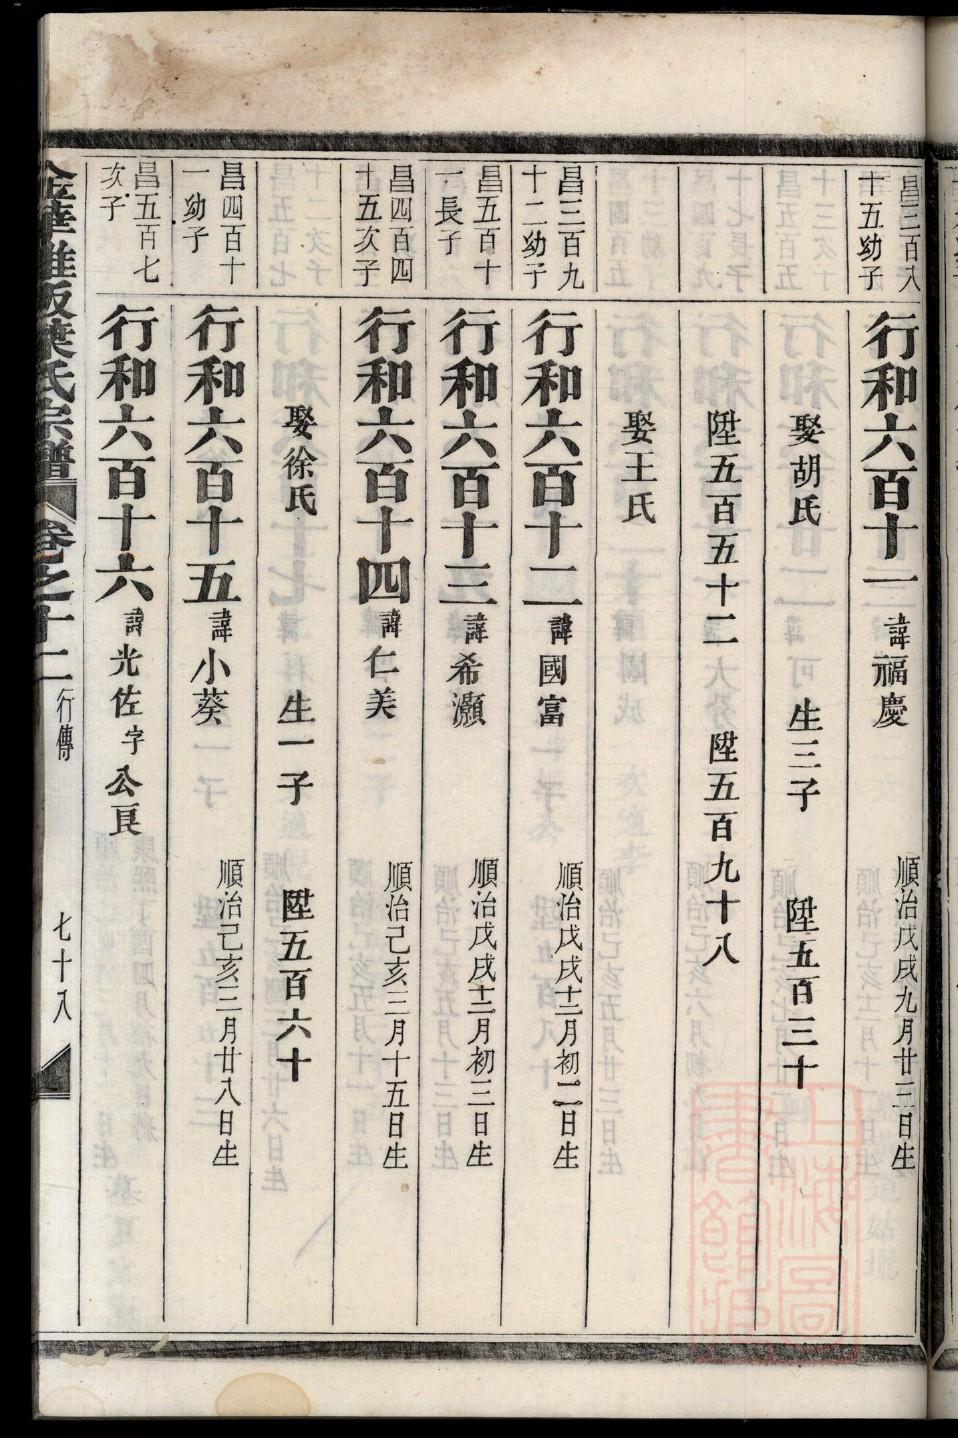 昌三百八十五幼子
行和六百十一 諱福慶 順治戊戌九月廿三日生
娶胡氏 生三子 陞五百三十
陞五百五十二 陞五百九十八
娶王氏
昌三百九十二幼子
行和六百十二 諱國富 順治戊戌十二月初二日生
昌五百十一長子
行和六百十三 諱希灝 順治戊戌十二月初三日生
昌四百四十五次子
行和六百十四 諱仁美 順治己亥三月十五日生
娶徐氏 生一子 陞五百六十
昌四百十一幼子
行和六百十五 諱小葵 順治己亥三月廿八日生
昌五百七次子
行和六百十六 諱光佐字公良
葉氏宗譜 卷之十二 行傳 七十八